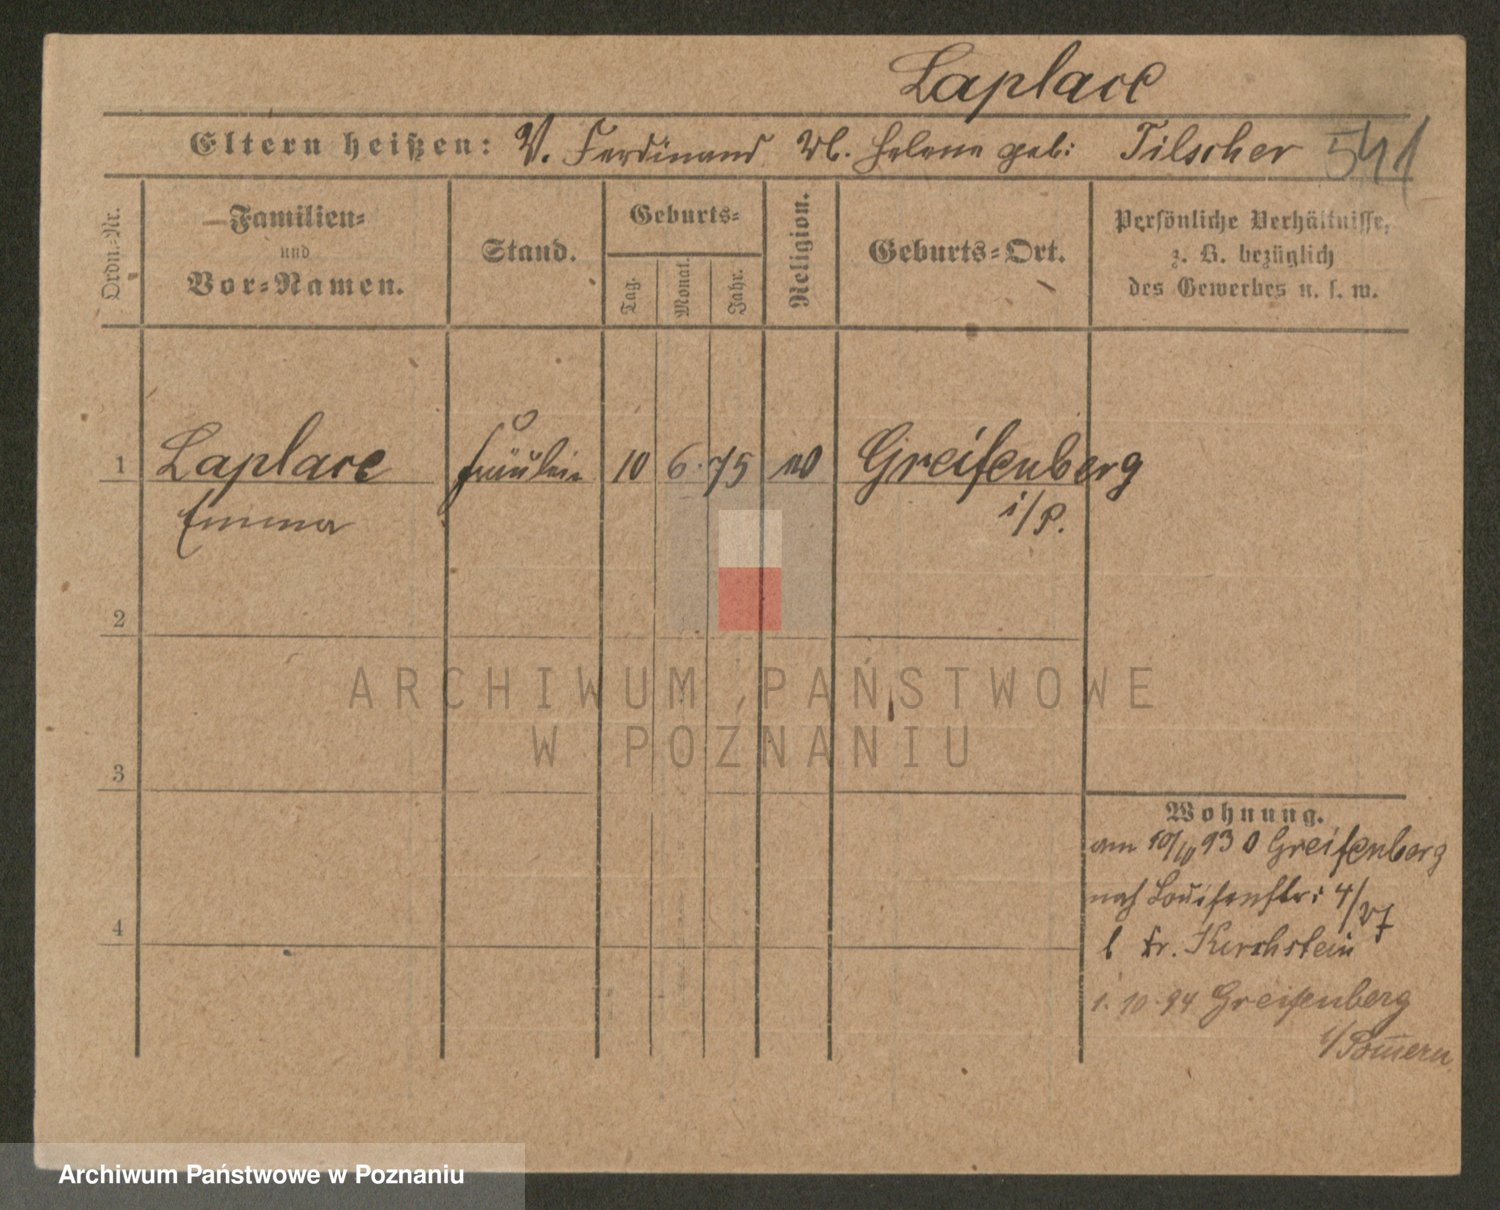 Laplace
Eltern heißen: V. Ferdinand M. Helene geb: Tilscher 541
Ordn.-Nr.
Familien-
und
Vor-Namen.
Stand.
Geburts-
Tag.
Monat.
Jahr.
Religion.
Geburts-Ort.
Persönliche Verhältnisse,
z. B. bezüglich
des Gewerbes u. s. w.
1 Laplace Fräulein 10 6. 75 Greifenberg
Emma i/P.
2
3
4
Wohnung.
am 10/10 93 Greifenberg
nach Louisenstr: 4/
b Fr. Kirchstein
1. 10. 94 Greifenberg
i/Pommern
ARCHIWUM PAŃSTWOWE
W POZNANIU
Archiwum Państwowe w Poznaniu